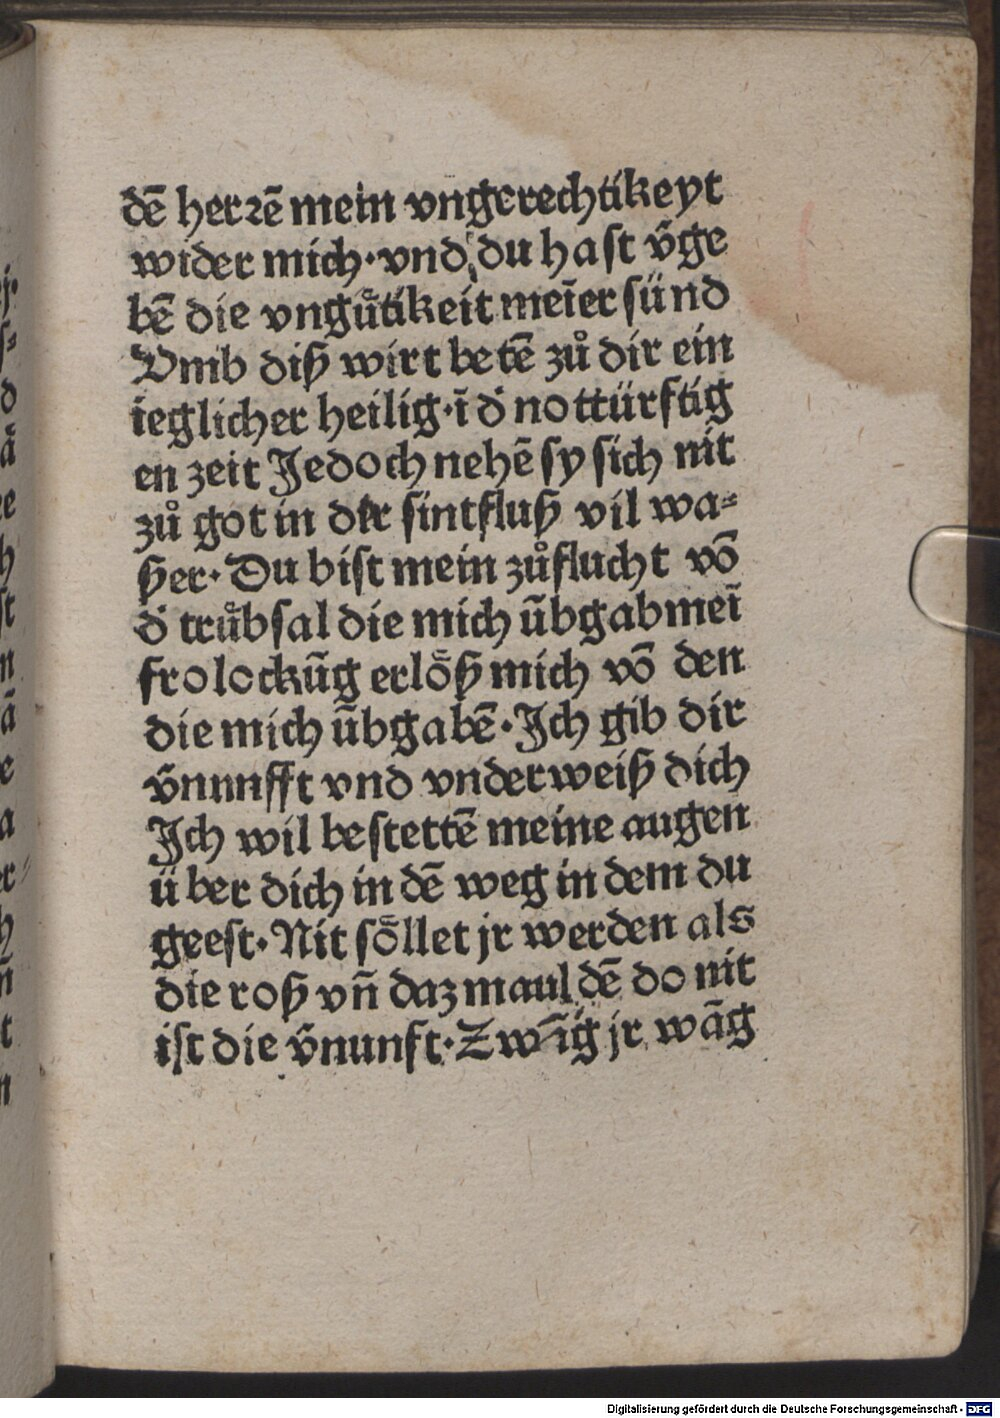 dē herꝛē mein vngerechtikeyt
wider mich·vnd du hast v̄ge
bē die vnguͤtikeit meīer sünd
Vmb diß wirt betē zuͦ dir ein
ieglicher heilig·ī d̄ nottürftig
en zeit Jedoch nehē sy sich nit
zuͦ got in der sintfluß vil wa⸗
ßer·Du bist mein zuͦflucht vō
d̄ truͤbsal die mich ūbgab meī
frolockūg erloͤß mich vō den
die mich ūbgabē·Jch gib dir
v̄nunfft vnd vnderweiß dich
Jch wil bestettē meine augen
über dich in dē weg in dem du
geest·Nit soͤllet jr werden als
die roß vn̄ daz maul dē do nit
ist die v̄nunft·Zwīg jr wāg
Digitalisierung gefördert durch die Deutsche Forschungsgemeinschaft - DFG